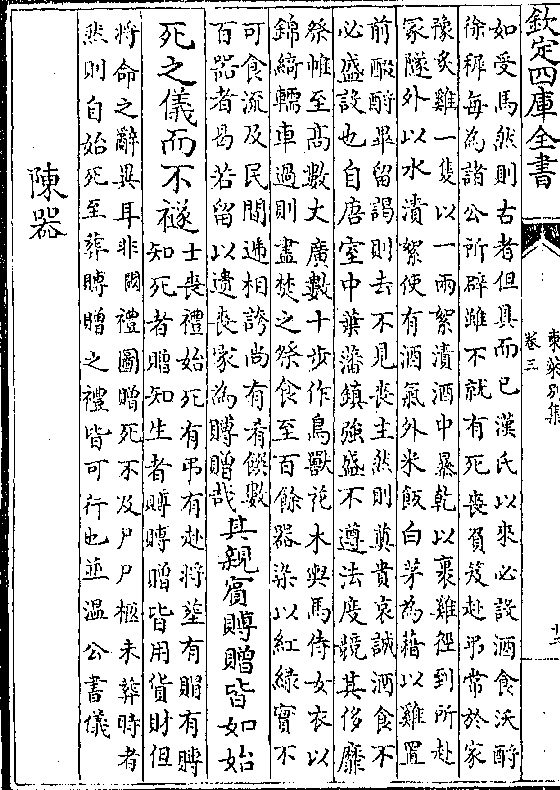 欽定四庫全書
東萊別集
卷三
如受馬然則古者但具而已漢氏以來必設酒食沃酹
徐稺每為諸公所辟雖不就有死喪負笈赴弔常於家
豫炙雞一隻以一兩絮漬酒中暴乾以裹雞徑到所赴
冡隧外以水漬絮使有酒氣升米飯白茅為藉以雞置
前酹酹畢留謁則去不見喪主然則奠貴哀誠酒食不
必盛設也自唐室中葉藩鎮強盛不遵法度競其侈靡
祭帷至髙數丈廣數十步作鳥獸花木輿馬侍女衣以
錦綺轜車過則盡焚之祭食至百餘器染以紅綠實不
可食流及民間遞相誇尚有肴饌數
百器者曷若留以遺喪家為賻贈哉
其親賓賻贈皆如始
死之儀而不襚
士喪禮始死有弔有赴將塟有賵有賻
知死者贈知生者賻賻贈皆用貨財但
將命之辭異耳非闕禮圖贈死不及尸尸柩未葬時者
然則自始死至葬賻贈之禮皆可行也並溫公書儀
陳器